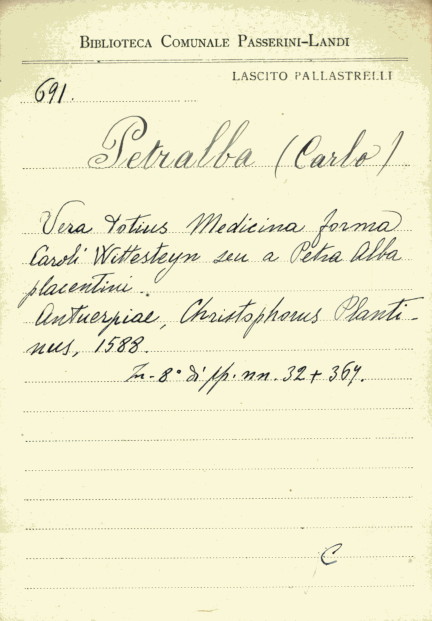 BIBLIOTECA COMUNALE PASSERINI-LANDI
LASCITO PALLASTRELLI
691.
Petralba (Carlo)
Vera totius Medicina forma
Caroli Wittesteyn seu a Petra Alba
placentini.
Antuerpiae, Christophorus Planti-
nus, 1588.
In-8° di pp. nn. 32 + 367.
C